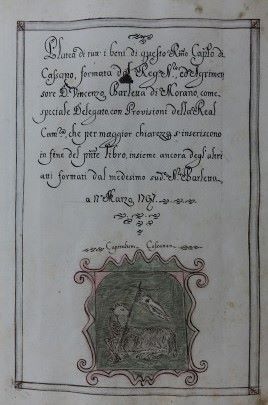 Platea di tutt'i beni di questo Rmo Caplo di
Cassano, formata dal Reg. Nor, ed Agrimen
sore D. Vincenzo Barletta di Morano, come
speciale Delegato, con Provisioni della Real
Camra, che per maggior chiarezza s'inseriscono
in fine del pnte libro, insieme ancora degl'altri
atti formati dal medesimo sudo Nr Barletta,
a Marzo 1767.
Capitulum Cassanen